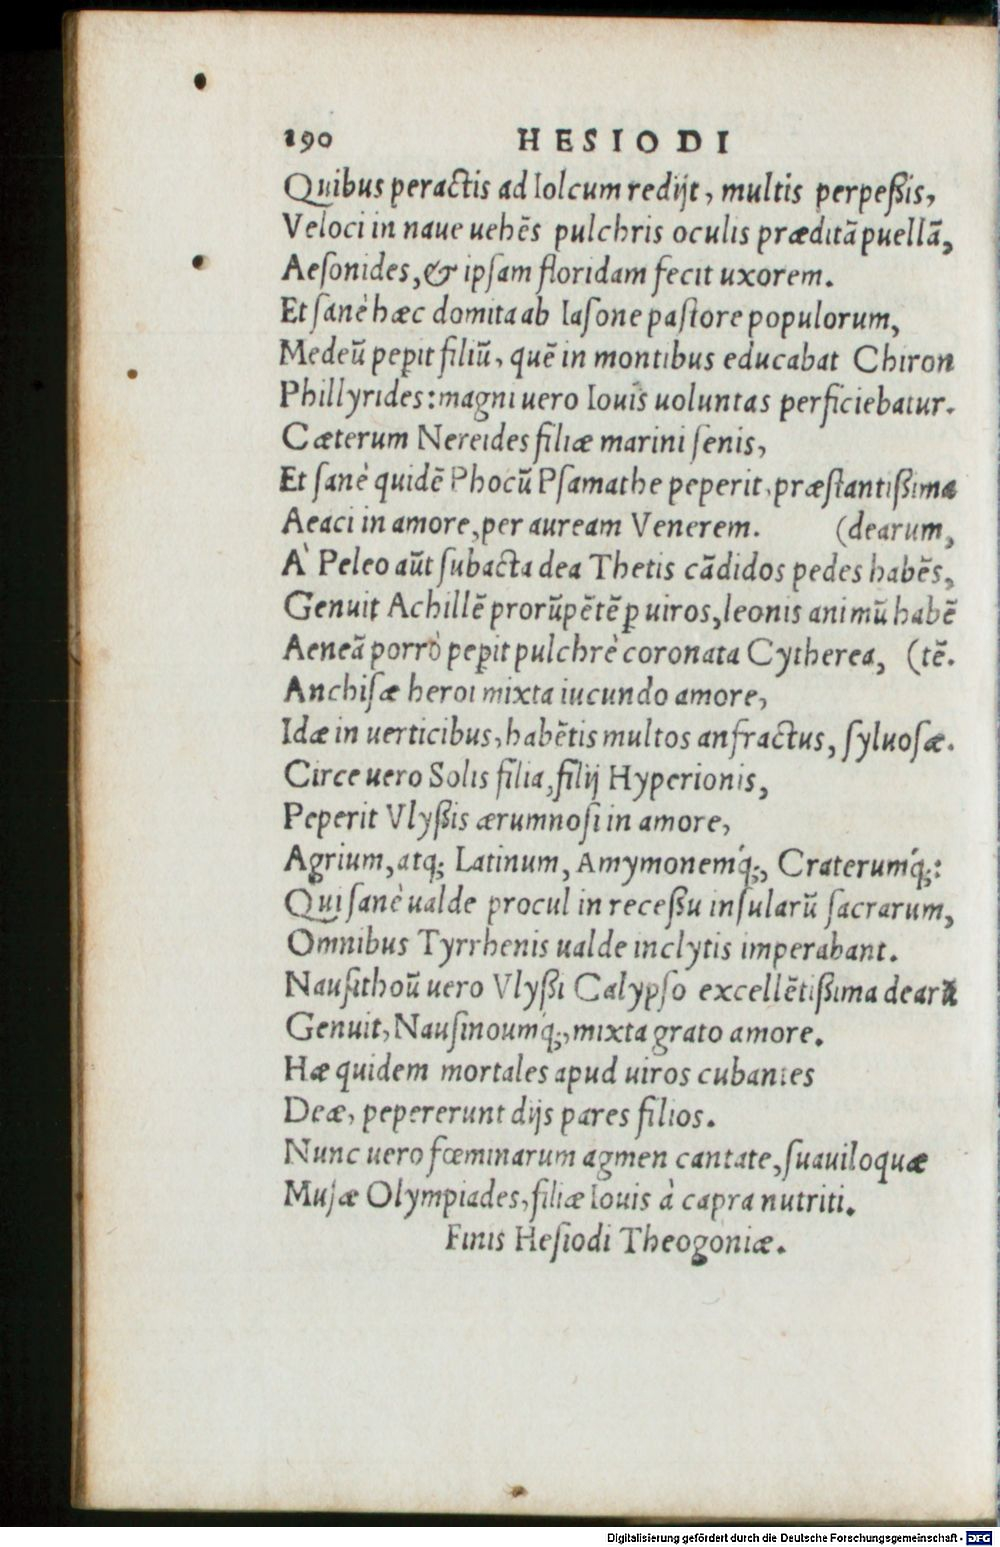 190 HESIODI
Quibus peractis ad Iolcum redijt, multis perpeßis,
Veloci in naue uehẽs pulchris oculis præditã puellã,
Aeſonides, & ipſam floridam fecit uxorem.
Et ſanè hæc domita ab Iaſone paſtore populorum,
Medeũ pep̱it filiũ, quẽ in montibus educabat Chiron
Phillyrides: magni uero Iouis uoluntas perficiebatur.
Cæterum Nereides filiæ marini ſenis,
Et ſanè quidẽ Phocũ Pſamathe peperit, præſtantißima
Aeaci in amore, per auream Venerem. (dearum,
À Peleo aũt ſubacta dea Thetis cãdidos pedes habẽs,
Genuit Achillẽ prorũpẽtẽ ꝑ uiros, leonis animũ habẽ
Aeneã porrò pep̱it pulchrè coronata Cytherea, (tẽ.
Anchiſæ heroi mixta iucundo amore,
Idæ in uerticibus, habẽtis multos anfractus, ſyluoſæ.
Circe uero Solis filia, filij Hyperionis,
Peperit Vlyßis ærumnoſi in amore,
Agrium, atq; Latinum, Amymonemq́;, Craterumq́;:
Qui ſanè ualde procul in receßu inſularũ ſacrarum,
Omnibus Tyrrhenis ualde inclytis imperabant.
Nauſithoũ uero Vlyßi Calypſo excellẽtißima dearũ
Genuit, Nauſinoumq́;, mixta grato amore.
Hæ quidem mortales apud uiros cubantes
Deæ, pepererunt dijs pares filios.
Nunc uero fœminarum agmen cantate, ſuauiloquæ
Muſæ Olympiades, filiæ Iouis à capra nutriti.
Finis Heſiodi Theogoniæ.
Digitalisierung gefördert durch die Deutsche Forschungsgemeinschaft - DFG